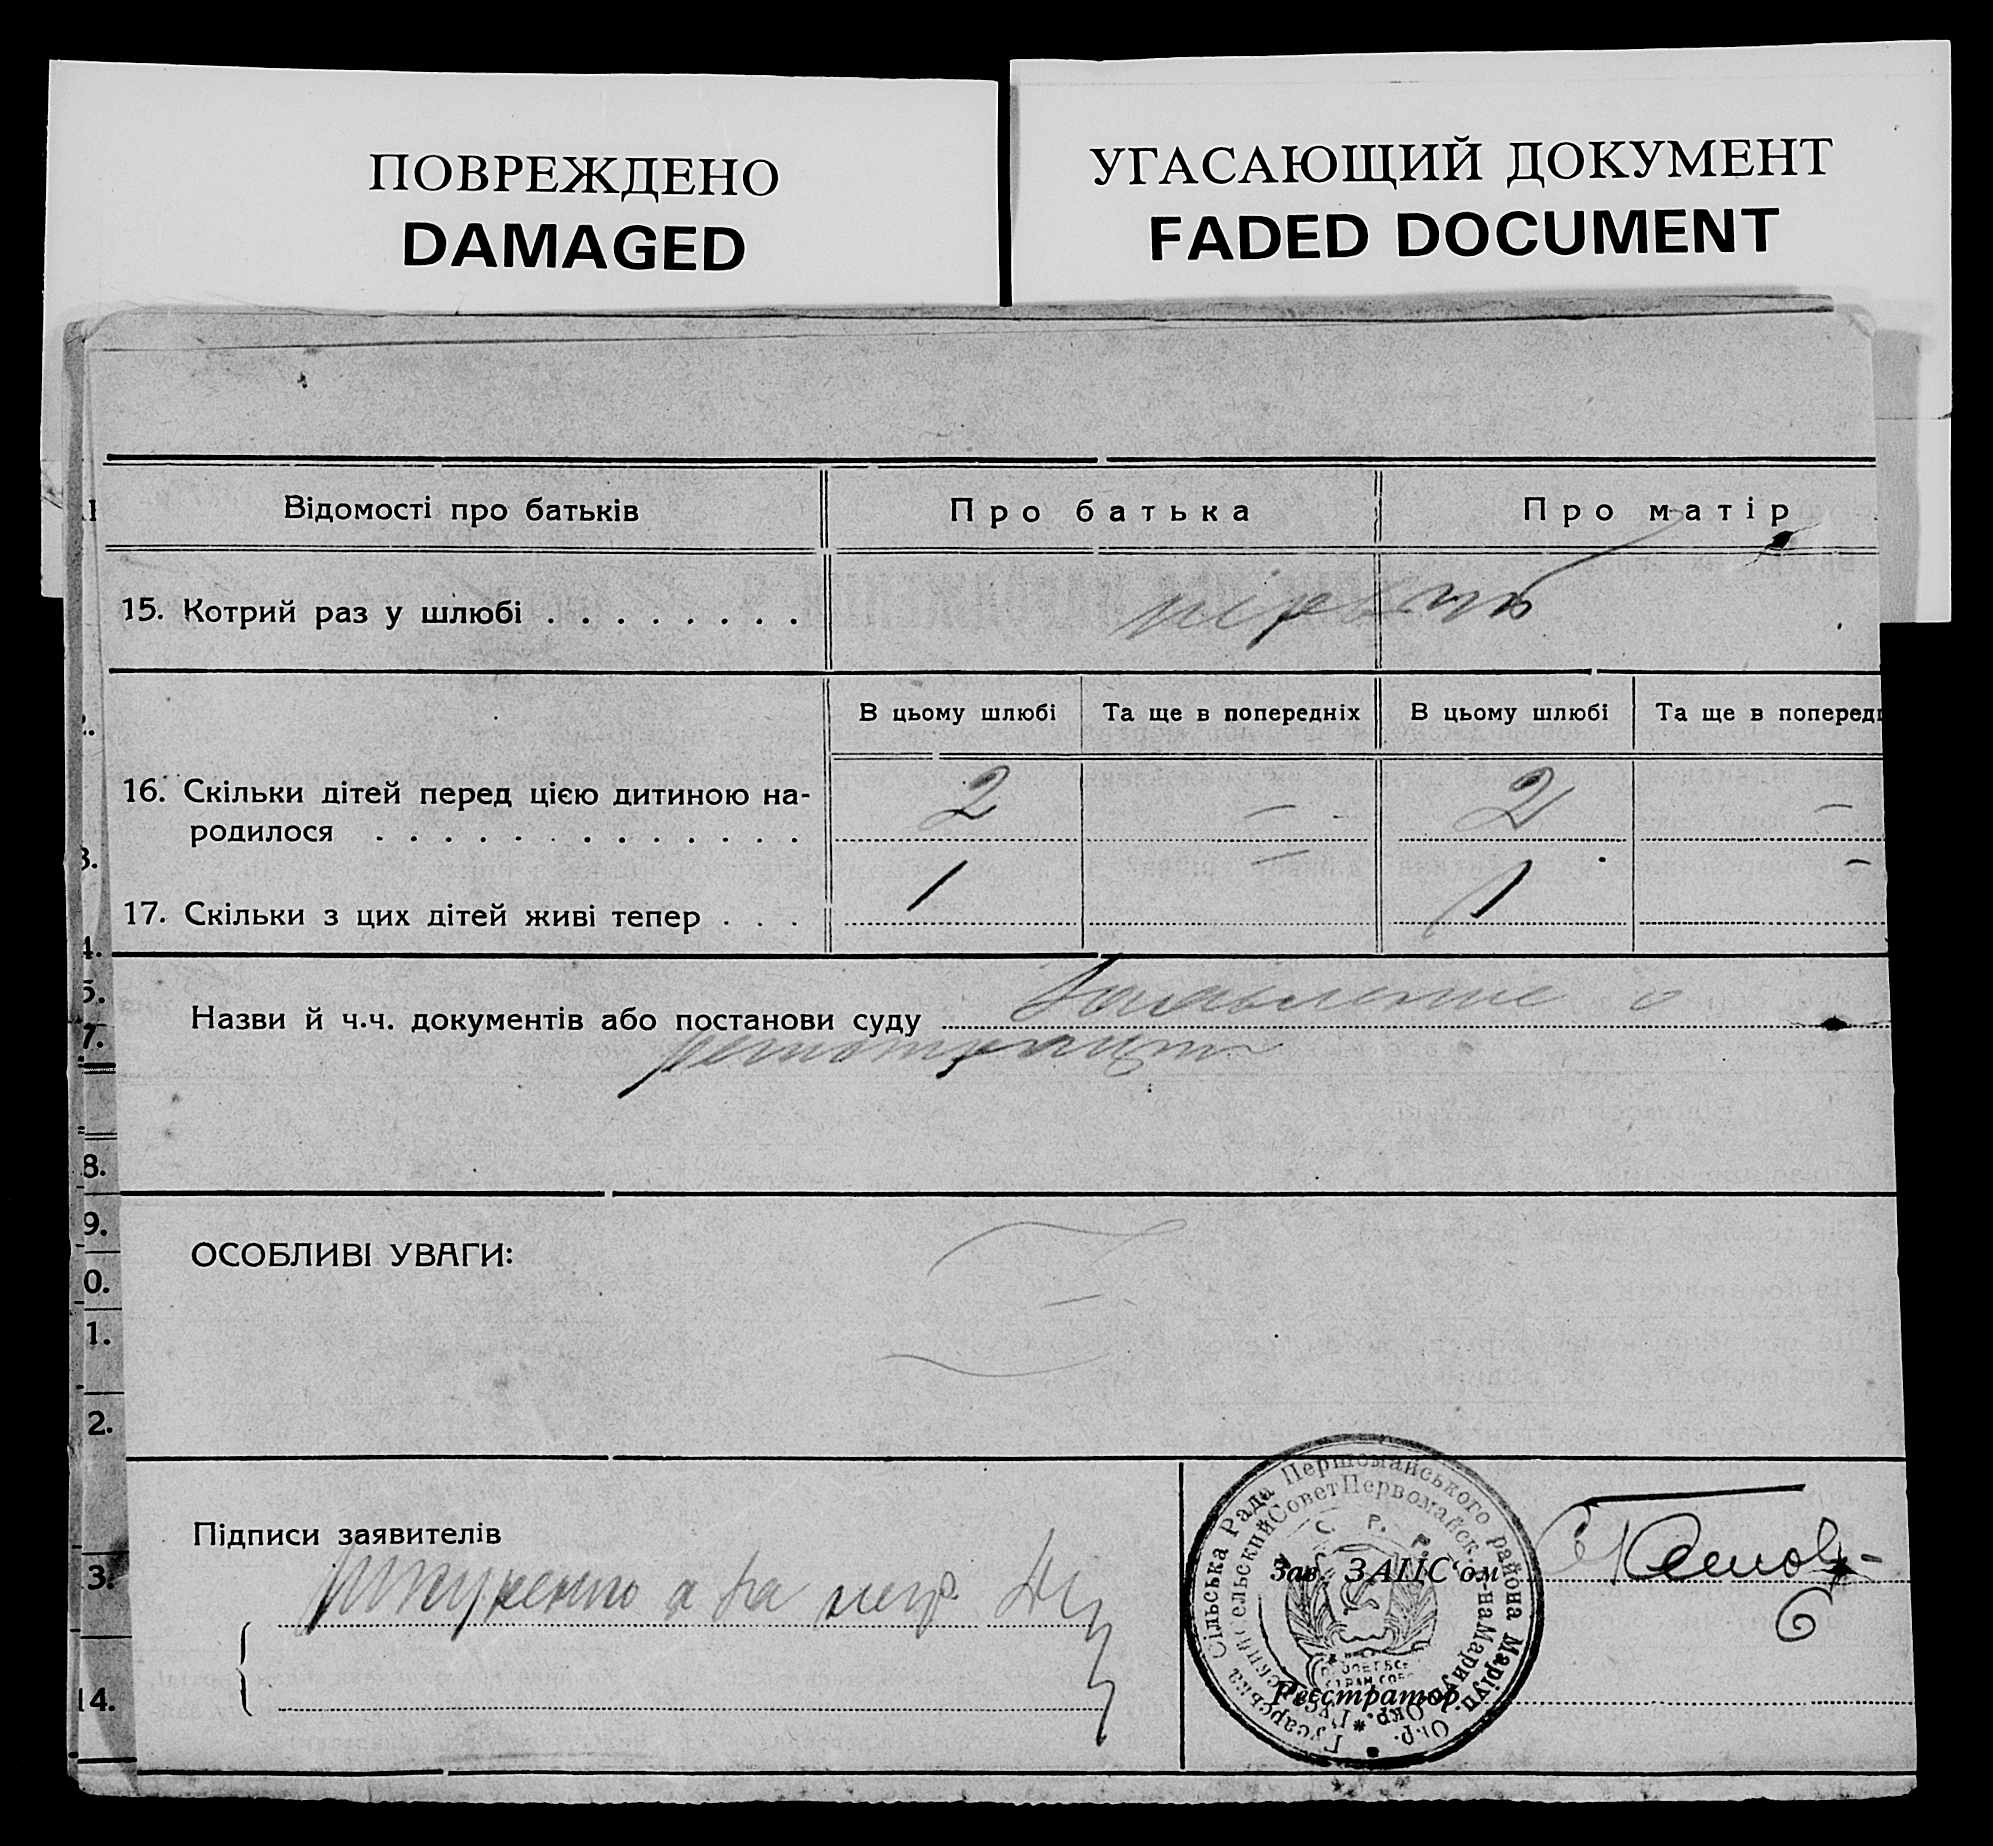 ПОВРЕЖДЕНО
DAMAGED
УГАСАЮЩИЙ ДОКУМЕНТ
FADED DOCUMENT
Відомості про батьків
Про батька
Про матір
15. Котрий раз у шлюбі . . . . . . . .
первий
В цьому шлюбі
Та ще в попередніх
В цьому шлюбі
Та ще в поперед
16. Скільки дітей перед цією дитиною на-
родилося . . . . . . . . . . . . .
2
–
2
–
17. Скільки з цих дітей живі тепер . . .
1
–
1
–
Назви й ч.ч. документів або постанови суду
Заявление о
регистрации
ОСОБЛИВІ УВАГИ:
Підписи заявителів
Зав. ЗАГС'ом
Реєстратор
Гусарська Сільська Рада Першомайського района Маріуп. Окр.
Сельский Совет Первомайск. р-на Мариуп. Окр.
8.
9.
0.
1.
2.
3.
14.